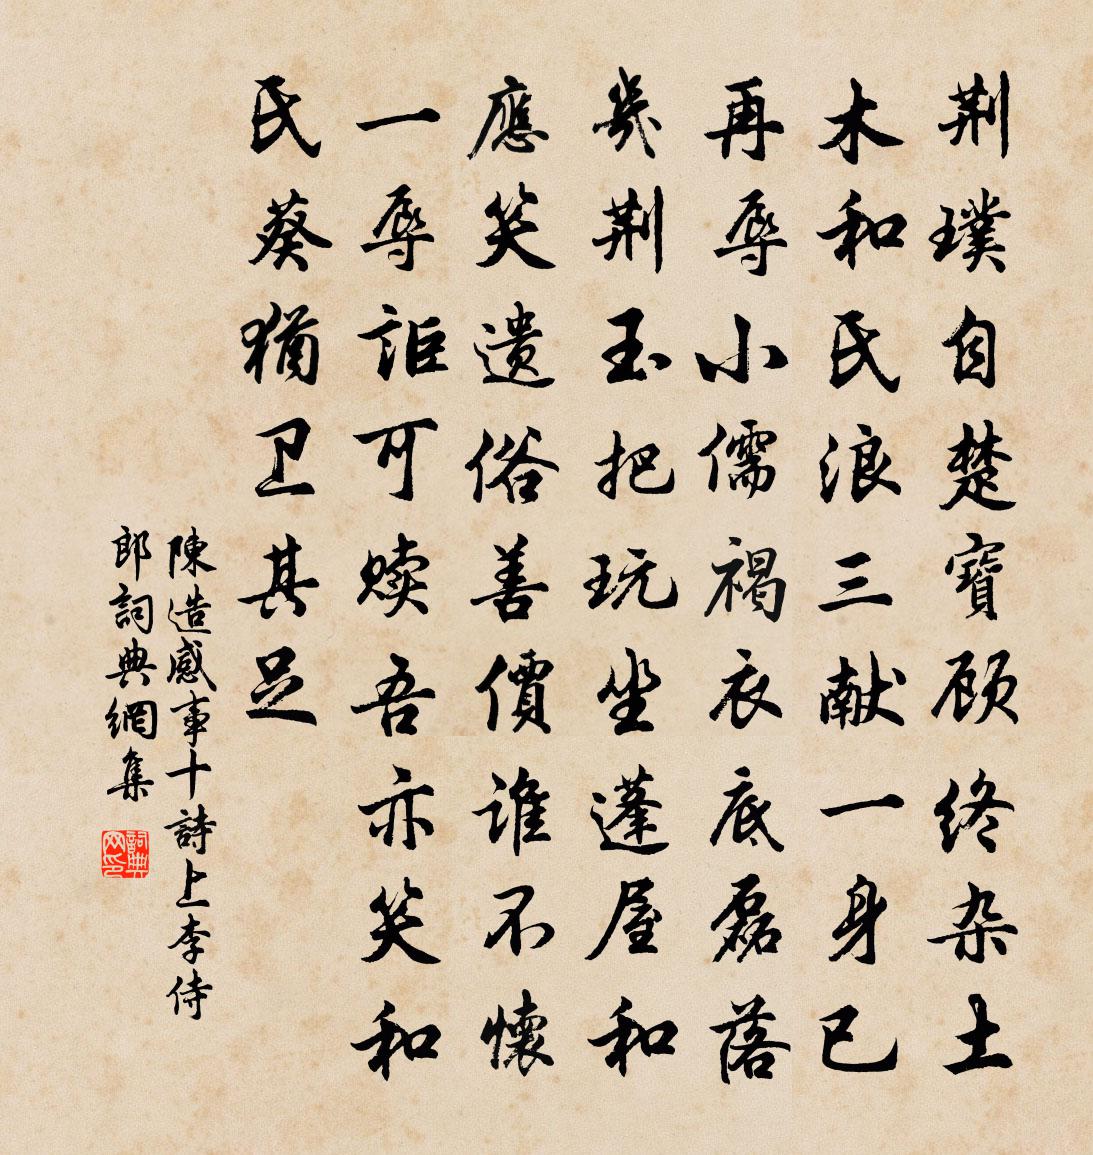 荆璞自楚寶顾终杂土
木和氏浪三献一身已
再辱小儒褐衣底磊落
幾荆玉把玩坐蓬屋和
應笑遗俗善價谁不懷
一辱詎可赎吾亦笑和
氏葵猶卫其足
陳造感事十詩上李侍
郎詞典網集
詞典网印